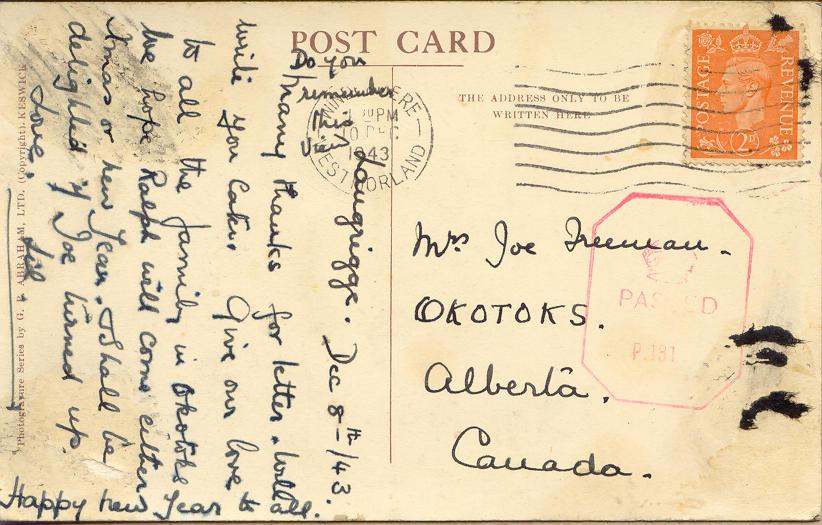 POST CARD
THE ADDRESS ONLY TO BE
WRITTEN HERE
POSTAGE
REVENUE
2D
30PM
10 DEC
1943
WESTMORLAND
Do you
remember
this
view
Langrigge. Dec 8th/43.
Many thanks for letter. Will
write you later. Give our love to
to all the family in Okotoks
We hope Ralph will come either
Xmas or new Year. I shall be
delighted if Joe turned up.
Love,
Happy new Year to all.
Mrs Joe Freeman.
OKOTOKS.
Alberta.
Canada.
PASSED
P.131
Photogravure Series by G. P. ABRAHAM, LTD. (Copyright), KESWICK